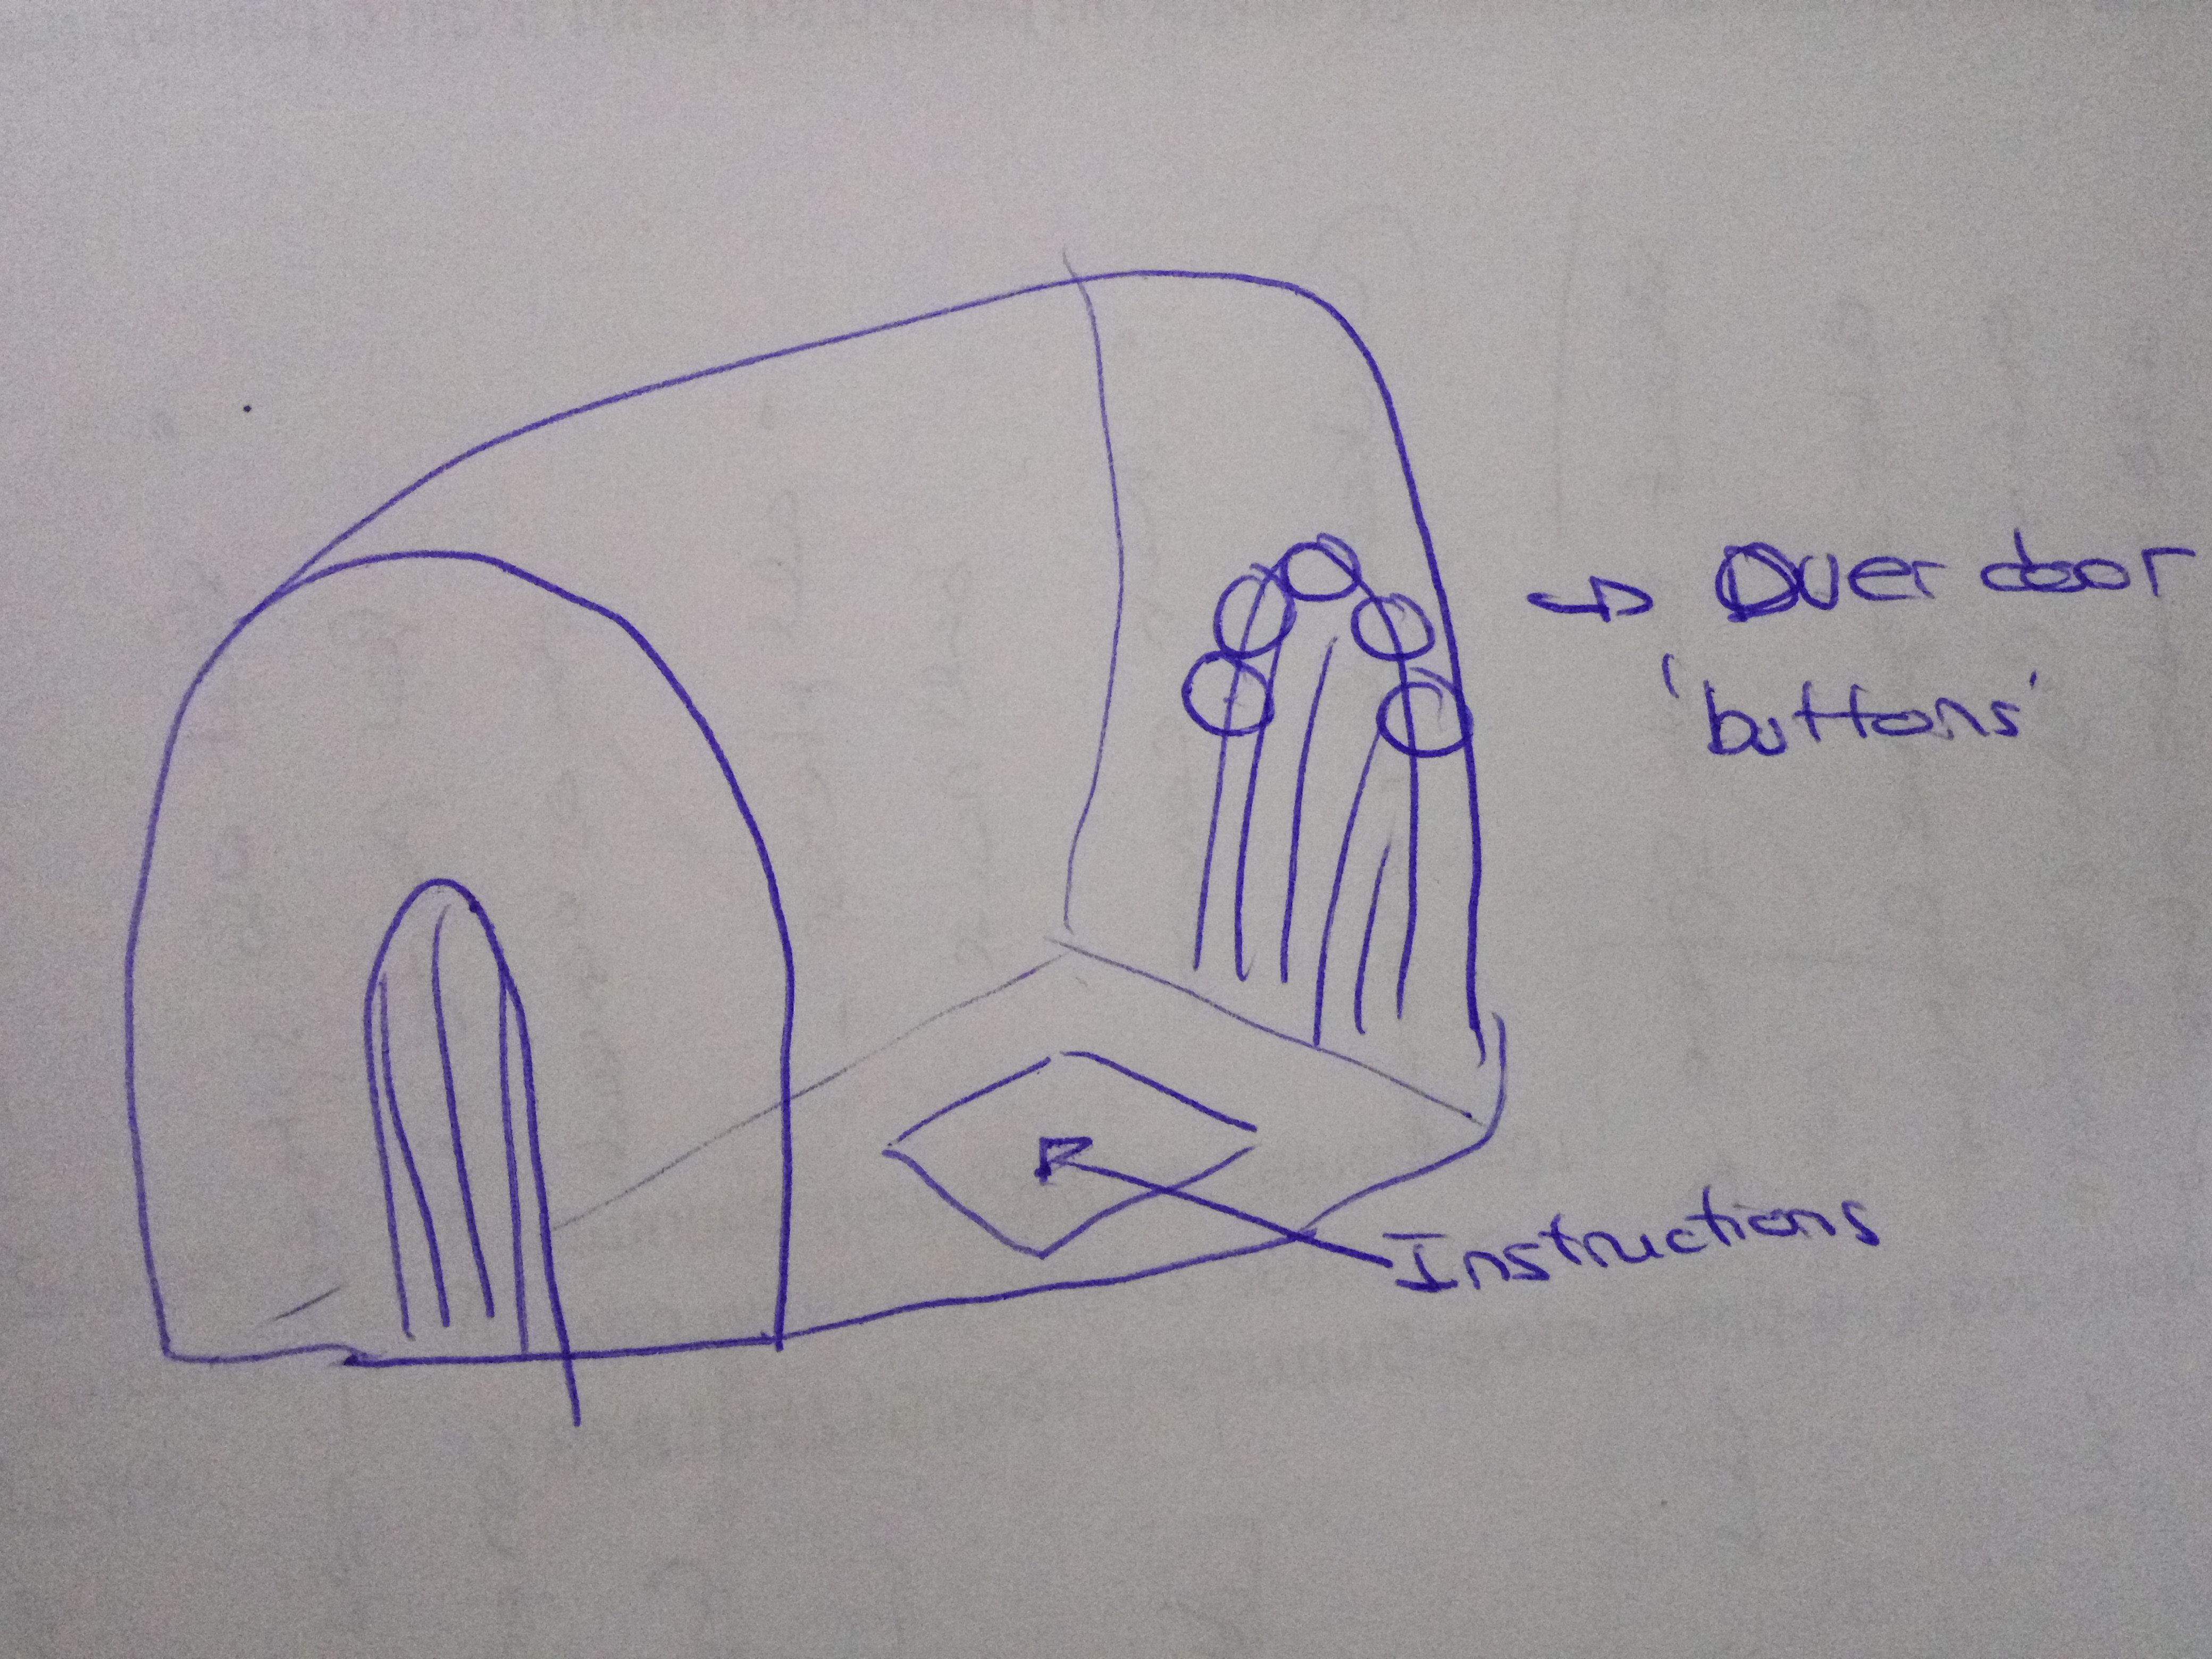 Over door
'buttons'
Instructions